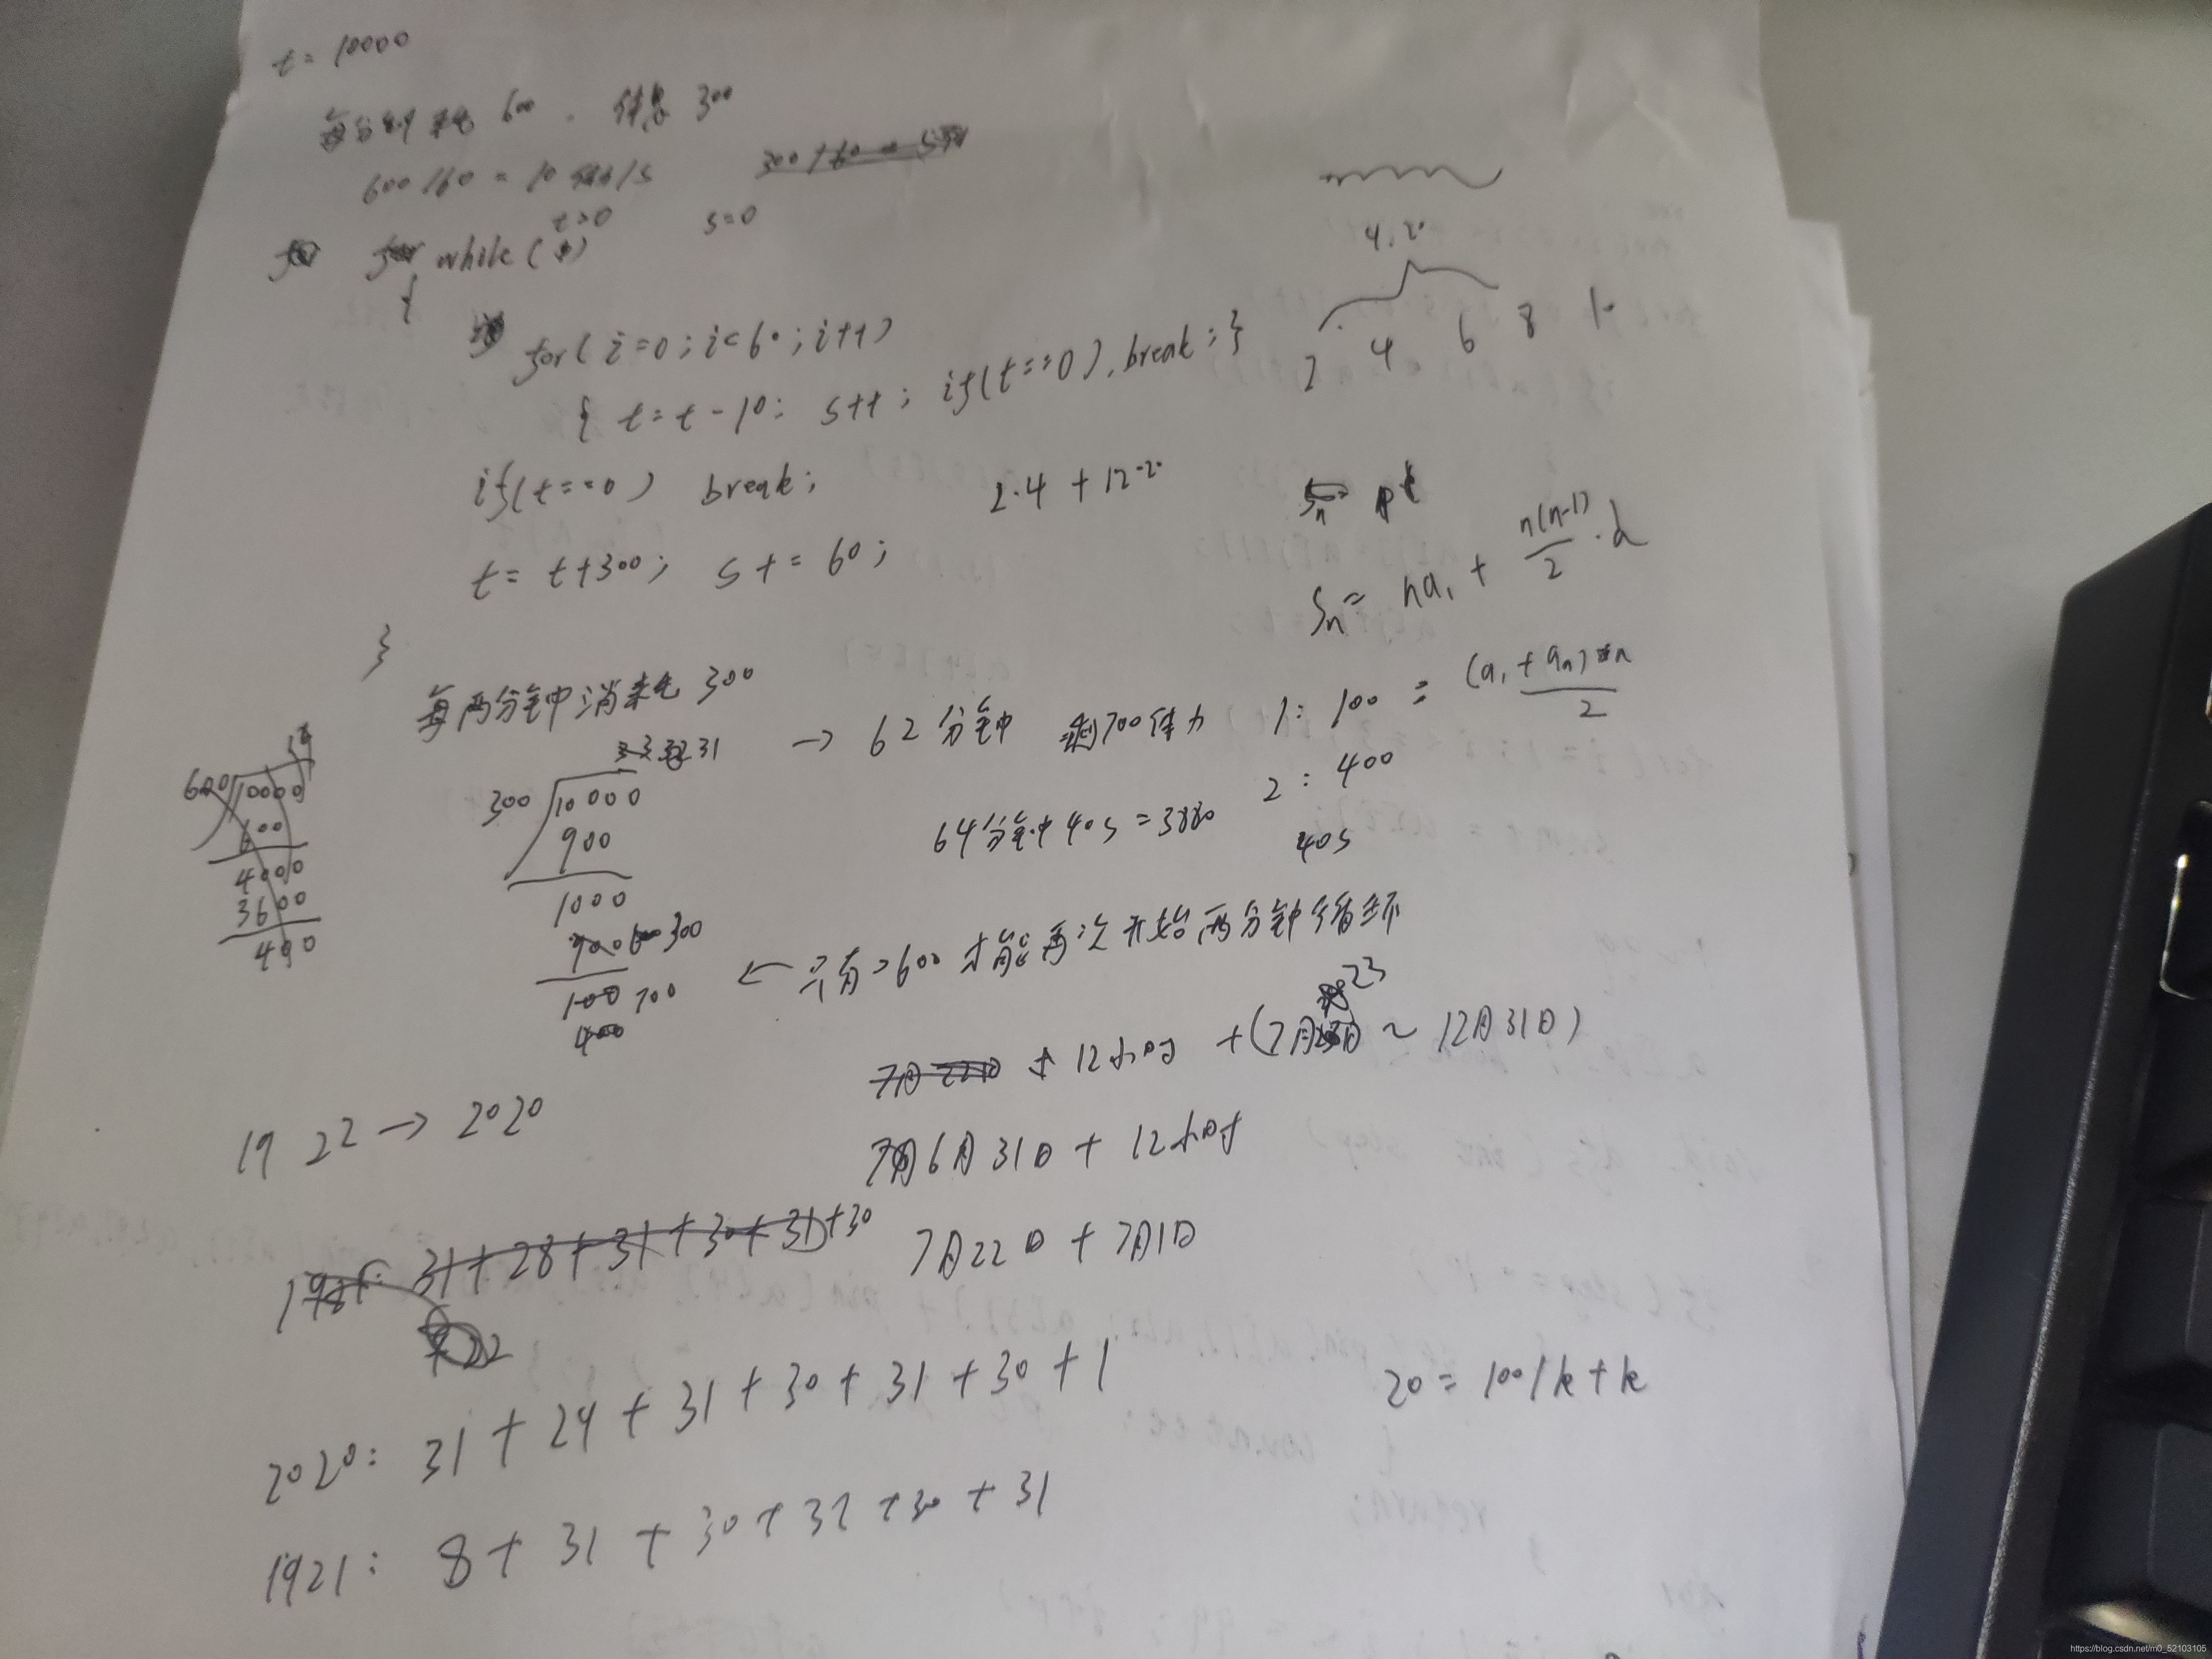 t = 10000
每分钟 消耗 600 . 休息 300
600/60 = 10 /s
300/60 =
t>0
s=0
while ( )
{
for( i=0 ; i<60 ; i++)
{ t = t - 10; s++ ; if(t==0), break ; }
if(t==0) break ;
t = t+300 ; s += 60 ;
}
4.2
2 4 6 8 10
2.4 + 12
Sn =
Sn = na1 + n(n-1)/2 · d
每两分钟中消耗 300
→ 62分钟 剩700体力
1: 100 = (a1 + an) * n / 2
2 : 400
40s
64分钟 40s = 3880
600 10000
600
4000
3600
400
31
300 10000
900
1000
900 600 300
100 700
400
← 只有>600 才能再次开始两分钟循环
19 22 → 2020
7月22日 + 12小时 + (7月23日 ~ 12月31日)
7月6月31日 + 12小时
31 + 28 + 31 + 30 + 31 + 30
22
7月22日 + 7月1日
2020: 31 + 29 + 31 + 30 + 31 + 30 + 1
20 = 100/k + k
1921: 8 + 31 + 30 + 31 + 30 + 31
https://blog.csdn.net/m0_52103105